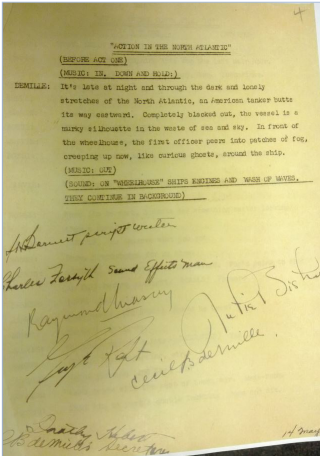 4
"ACTION IN THE NORTH ATLANTIC"
(BEFORE ACT ONE)
(MUSIC: IN, DOWN AND HOLD:)
DEMILLE: It's late at night and through the dark and lonely
stretches of the North Atlantic, an American tanker butts
its way eastward. Completely blacked out, the vessel is a
murky silhouette in the waste of sea and sky. In front of
the wheelhouse, the first officer peers into patches of fog,
creeping up now, like curious ghosts, around the ship.
(MUSIC: OUT)
(SOUND: ON "WHEELHOUSE" SHIPS ENGINES AND WASH OF WAVES.
THEY CONTINUE IN BACKGROUND)
script writer
Charles Forsyth Sound Effects man
Raymond Massey
George Raft
Cecil B deMille
CB deMille's Secretary
14 May